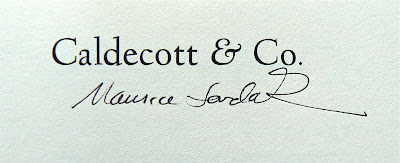 Caldecott & Co.
Maurice Sendak